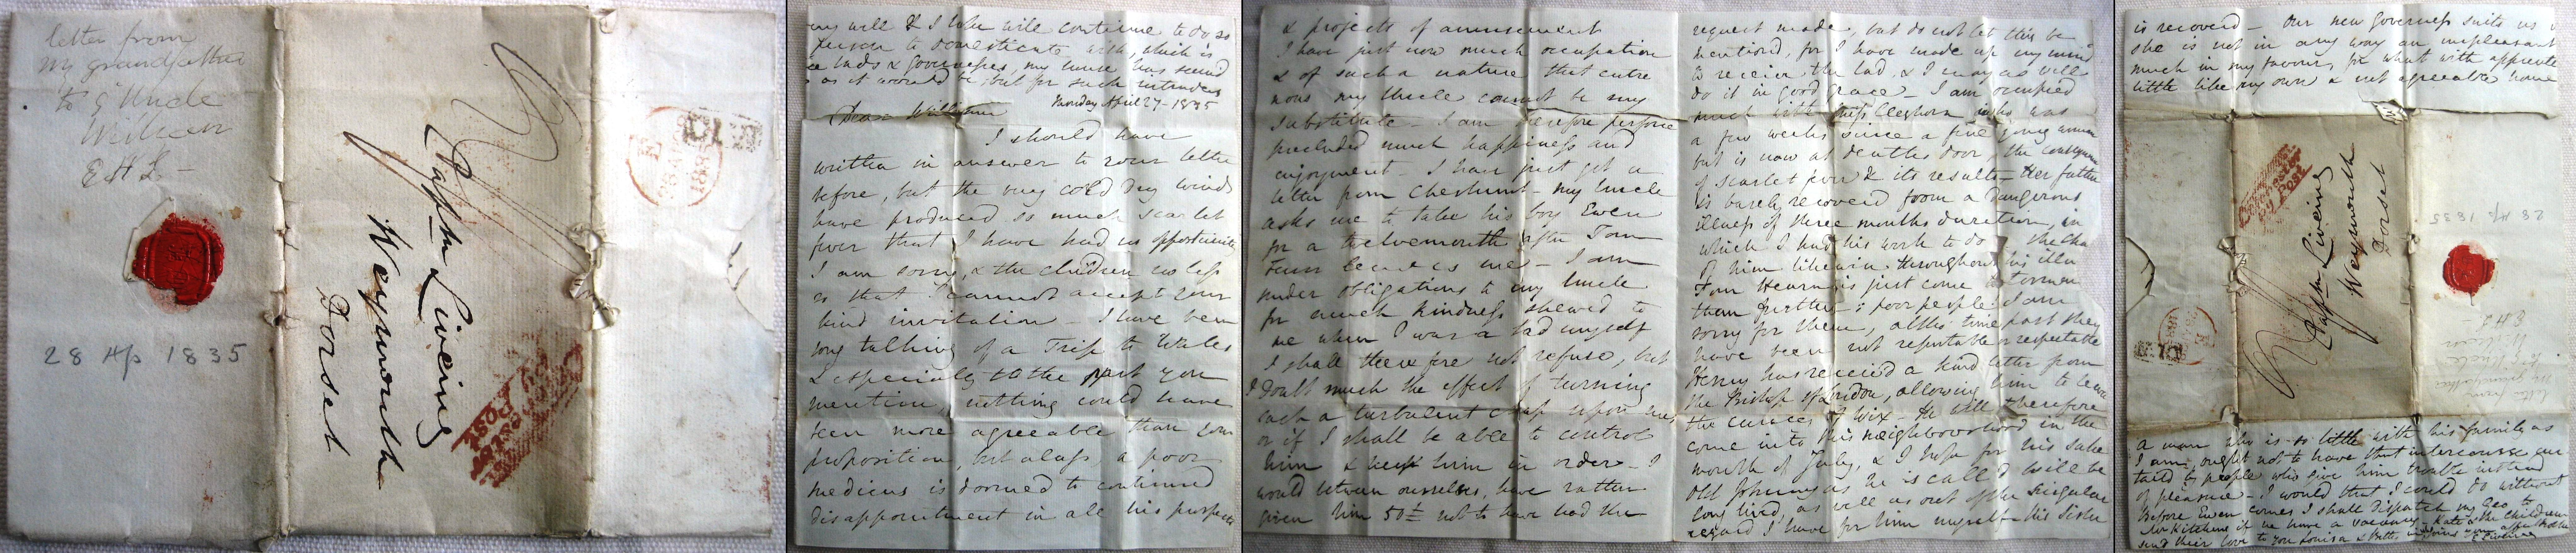 letter from
my grandfather
to g' Uncle
William
E H L -
28 Ap 1835
Capt Liveing
Weymouth
Dorset
Colchester
Py Post
my will & I take will continue to do so
person to domesticate with, which is
lads & governesses, my house has seemed
as it would be but for such intruders
Dear William
Monday April 27 - 1835
I should have
written in answer to your letter
before, but the very cold dry winds
have produced so much scarlet
fever that I have had no opportunity
I am sorry, & the children no less
so that I cannot accept your
kind invitation - I have been
long talking of a Trip to Wales
& especially to the part you
mention, nothing could have
been more agreeable than your
proposition, but alass, a poor
medicus is doomed to continued
disappointment in all his prospects
& projects of amusement
I have just now much occupation
& of such a nature that entre
nous my Uncle cannot be my
substitute - I am therefore perforce
precluded much happiness and
enjoyment - I have just got a
letter from Cheshunt - my Uncle
asks me to take his boy Ewen
for a twelvemonth after Tom
leaves me - I am
under obligations to my Uncle
for much kindness shewed to
me when I was a lad myself
I shall therefore not refuse, but
I doubt much the effect of turning
such a turbulent chap upon me,
or if I shall be able to control
him & keep him in order - I
would between ourselves, have rather
given him 50£ not to have had the
request made, but do not let this be
mentioned, for I have made up my mind
to receive the lad, & I may as well
do it in good grace - I am occupied
much with Miss Cleghorn who was
a few weeks since a fine young woman
but is now at deaths door, the consequence
of scarlet fever & its results - Her father
is barely recovered from a dangerous
illness of three months duration, in
which I had his work to do & the
of him likewise throughout his illness
Tom Hearn is just come to torment
them further; poor people! I am
sorry for them, altho' time past they
have been not reputable or respectable
Henry has received a kind letter from
the Bishop of London, allowing him to leave
the curacy of Wix - He will therefore
come into this neighbourhood in the
month of July, & I hope for his sake
old Johnny as he is call'd will be
long lived, as well as out of the singular
regard I have for him myself - His Sister
is recovered - Our new Governess suits us
she is not in any way an unpleasant
much in my favour, for what with apprentices
little like my own & not agreeable home
Colchester
Py Post
Capt Liveing
Weymouth
Dorset
28 Ap 1835
letter from
my grandfather
to g' Uncle
William
E H L -
a man who is so little with his family as
I am, ought not to have that intercourse
by people who give him trouble instead
of pleasure - I would that I could do without
Before Ewen comes I shall dispatch my Geo to
Mr Kitcheners if we have a vacancy - Kate & the children
send their love to you Louisa & Betts,